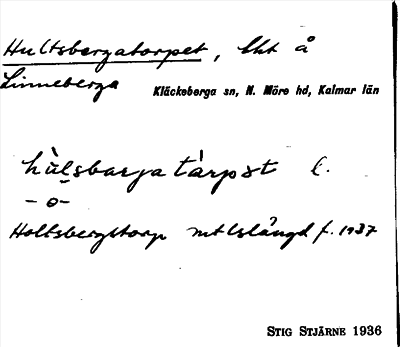 Hultsbergatorpet, lht å
Linneberga
Kläckeberga sn, N. Möre hd, Kalmar län
hùlsbarjatårpət l.
- o -
Holtsbergstorp mtlslängd f. 1937
STIG STJÄRNE 1936